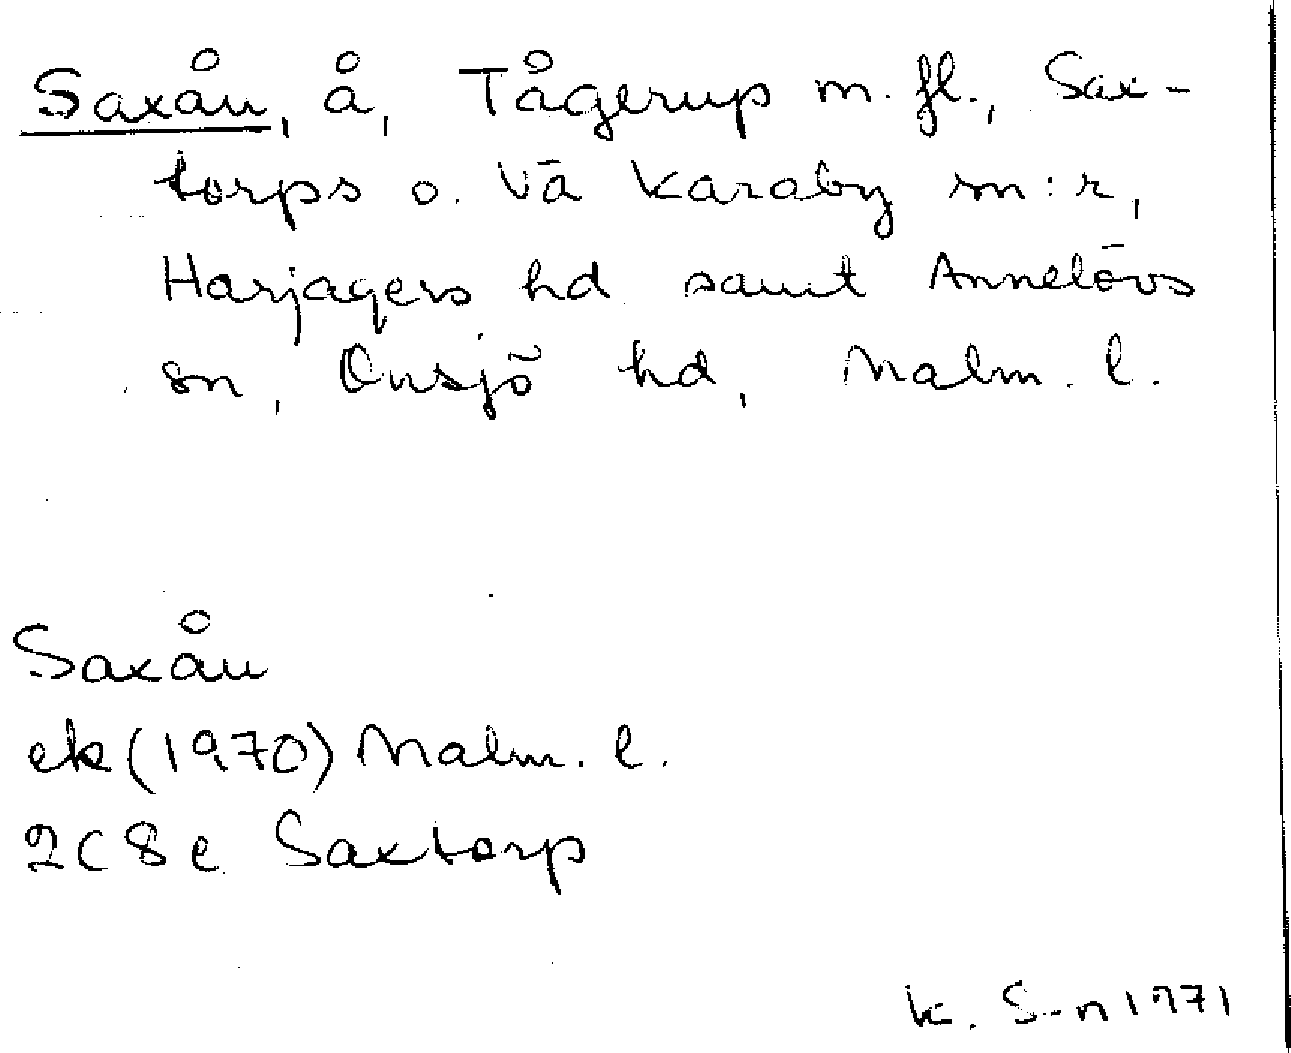 Saxån, å, Tågerup m. fl., Sax-
torps o. Vä Karaby sn:r,
Harjagers hd samt Annelövs
sn, Onsjö hd, Malm. l.
Saxån
ek (1970) Malm. l.
2C8e Saxtorp
K. S-n 1971